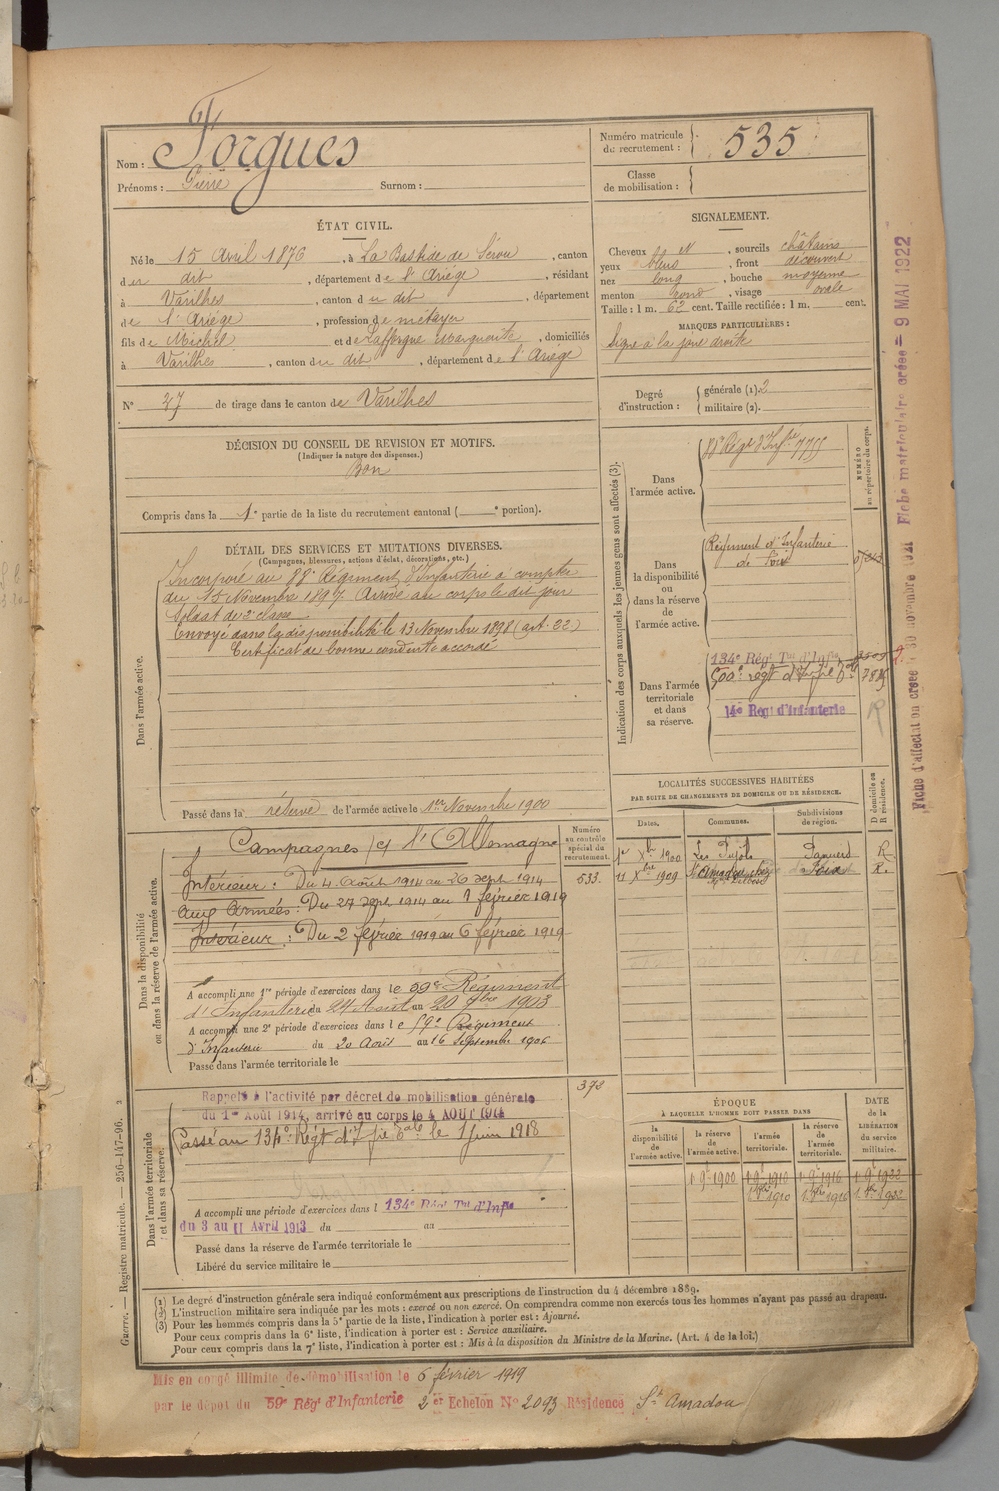 Nom : Forgues
Prénoms : Pierre Surnom :
Numéro matricule du recrutement : 535
Classe de mobilisation :
ÉTAT CIVIL.
Né le 15 Avril 1876, à La Bastide de Sérou, canton
du dit, département de l'Ariège, résidant
à Varilhes, canton du dit, département
de l'Ariège, profession de métayer
fils de Michel et de Lafforgue Marguerite, domiciliés
à Varilhes, canton du dit, département de l'Ariège
N° 37 de tirage dans le canton de Varilhes
SIGNALEMENT.
Cheveux N, sourcils châtains
yeux bleus, front découvert
nez long, bouche moyenne
menton rond, visage ovale
Taille : 1 m. 62 cent. Taille rectifiée : 1 m. cent.
MARQUES PARTICULIÈRES :
Signe à la joue droite
Degré d'instruction : générale (1). 2
militaire (2).
DÉCISION DU CONSEIL DE REVISION ET MOTIFS.
(Indiquer la nature des dispenses.)
Bon
Compris dans la 1e partie de la liste du recrutement cantonal ( e portion).
DÉTAIL DES SERVICES ET MUTATIONS DIVERSES.
(Campagnes, blessures, actions d'éclat, décorations, etc.)
Dans l'armée active.
Incorporé au 88e Régiment d'Infanterie à compter
du 15 Novembre 1897 Arrivé au corps le dit jour
Soldat de 2e classe
Envoyé dans la disponibilité le 13 Novembre 1898 (art. 22)
Certificat de bonne conduite accordé
Passé dans la réserve de l'armée active le 1er Novembre 1900
Indication des corps auxquels les jeunes gens sont affectés (3).
NUMÉRO au répertoire du corps.
Dans l'armée active.
88e Régt d'Infie 7755
Dans la disponibilité ou dans la réserve de l'armée active.
Régiment d'Infanterie
de Foix
Dans l'armée territoriale et dans sa réserve.
134e Régt Tal d'Infie
500e régt d'Infie
14e Régt d'Infanterie
R
Dans la disponibilité ou dans la réserve de l'armée active.
Numéro au contrôle spécial du recrutement.
533.
Campagnes c/ l'Allemagne
Intérieur : Du 4 Août 1914 au 26 Sept 1914
Aux Armées : Du 27 Sept 1914 au 1 février 1919
Intérieur : Du 2 février 1919 au 6 février 1919
A accompli une 1re période d'exercices dans le 59e Régiment
d'Infanterie du 24 Août au 20 7bre 1903
A accompli une 2e période d'exercices dans le 59e Régiment
d'Infanterie du 20 Août au 16 Septembre 1906
Passé dans l'armée territoriale le
LOCALITÉS SUCCESSIVES HABITÉES
PAR SUITE DE CHANGEMENTS DE DOMICILE OU DE RÉSIDENCE.
Dates. Communes. Subdivisions de région. D domicile ou R résidence.
1er Xbre 1900 Les Pujols R.
11 Xbre 1909 St Amadou Foix R.
Dans l'armée territoriale et dans sa réserve.
373
Rappelé à l'activité par décret de mobilisation générale
du 1er Août 1914, arrivé au corps le 4 AOUT 1914
Passé au 134e Régt d'Infie Tale le 1 Juin 1918
A accompli une période d'exercices dans l 134e Régt Tal d'Infie
du 3 au 11 Avril 1913 du au
Passé dans la réserve de l'armée territoriale le
Libéré du service militaire le
ÉPOQUE
À LAQUELLE L'HOMME DOIT PASSER DANS
la disponibilité de l'armée active. la réserve de l'armée active. l'armée territoriale. la réserve de l'armée territoriale.
DATE de la LIBÉRATION du service militaire.
1 9e 1900 1 9e 1910 1 9e 1916 1 9e 1922
(1) Le degré d'instruction générale sera indiqué conformément aux prescriptions de l'instruction du 4 décembre 1889.
(2) L'instruction militaire sera indiquée par les mots : exercé ou non exercé. On comprendra comme non exercés tous les hommes n'ayant pas passé au drapeau.
(3) Pour les hommes compris dans la 5e partie de la liste, l'indication à porter est : Ajourné.
Pour ceux compris dans la 6e liste, l'indication à porter est : Service auxiliaire.
Pour ceux compris dans la 7e liste, l'indication à porter est : Mis à la disposition du Ministre de la Marine. (Art. 4 de la loi.)
Guerre. — Registre matricule. — 256-147-96. 2
Mis en congé illimité de démobilisation le 6 février 1919
par le dépôt du 59e Régt d'Infanterie 2er Echelon No 2093 Résidence St Amadou
Fiche d'affectation créée 30 novembre 1921 Fiche matriculaire créée = 9 MAI 1922